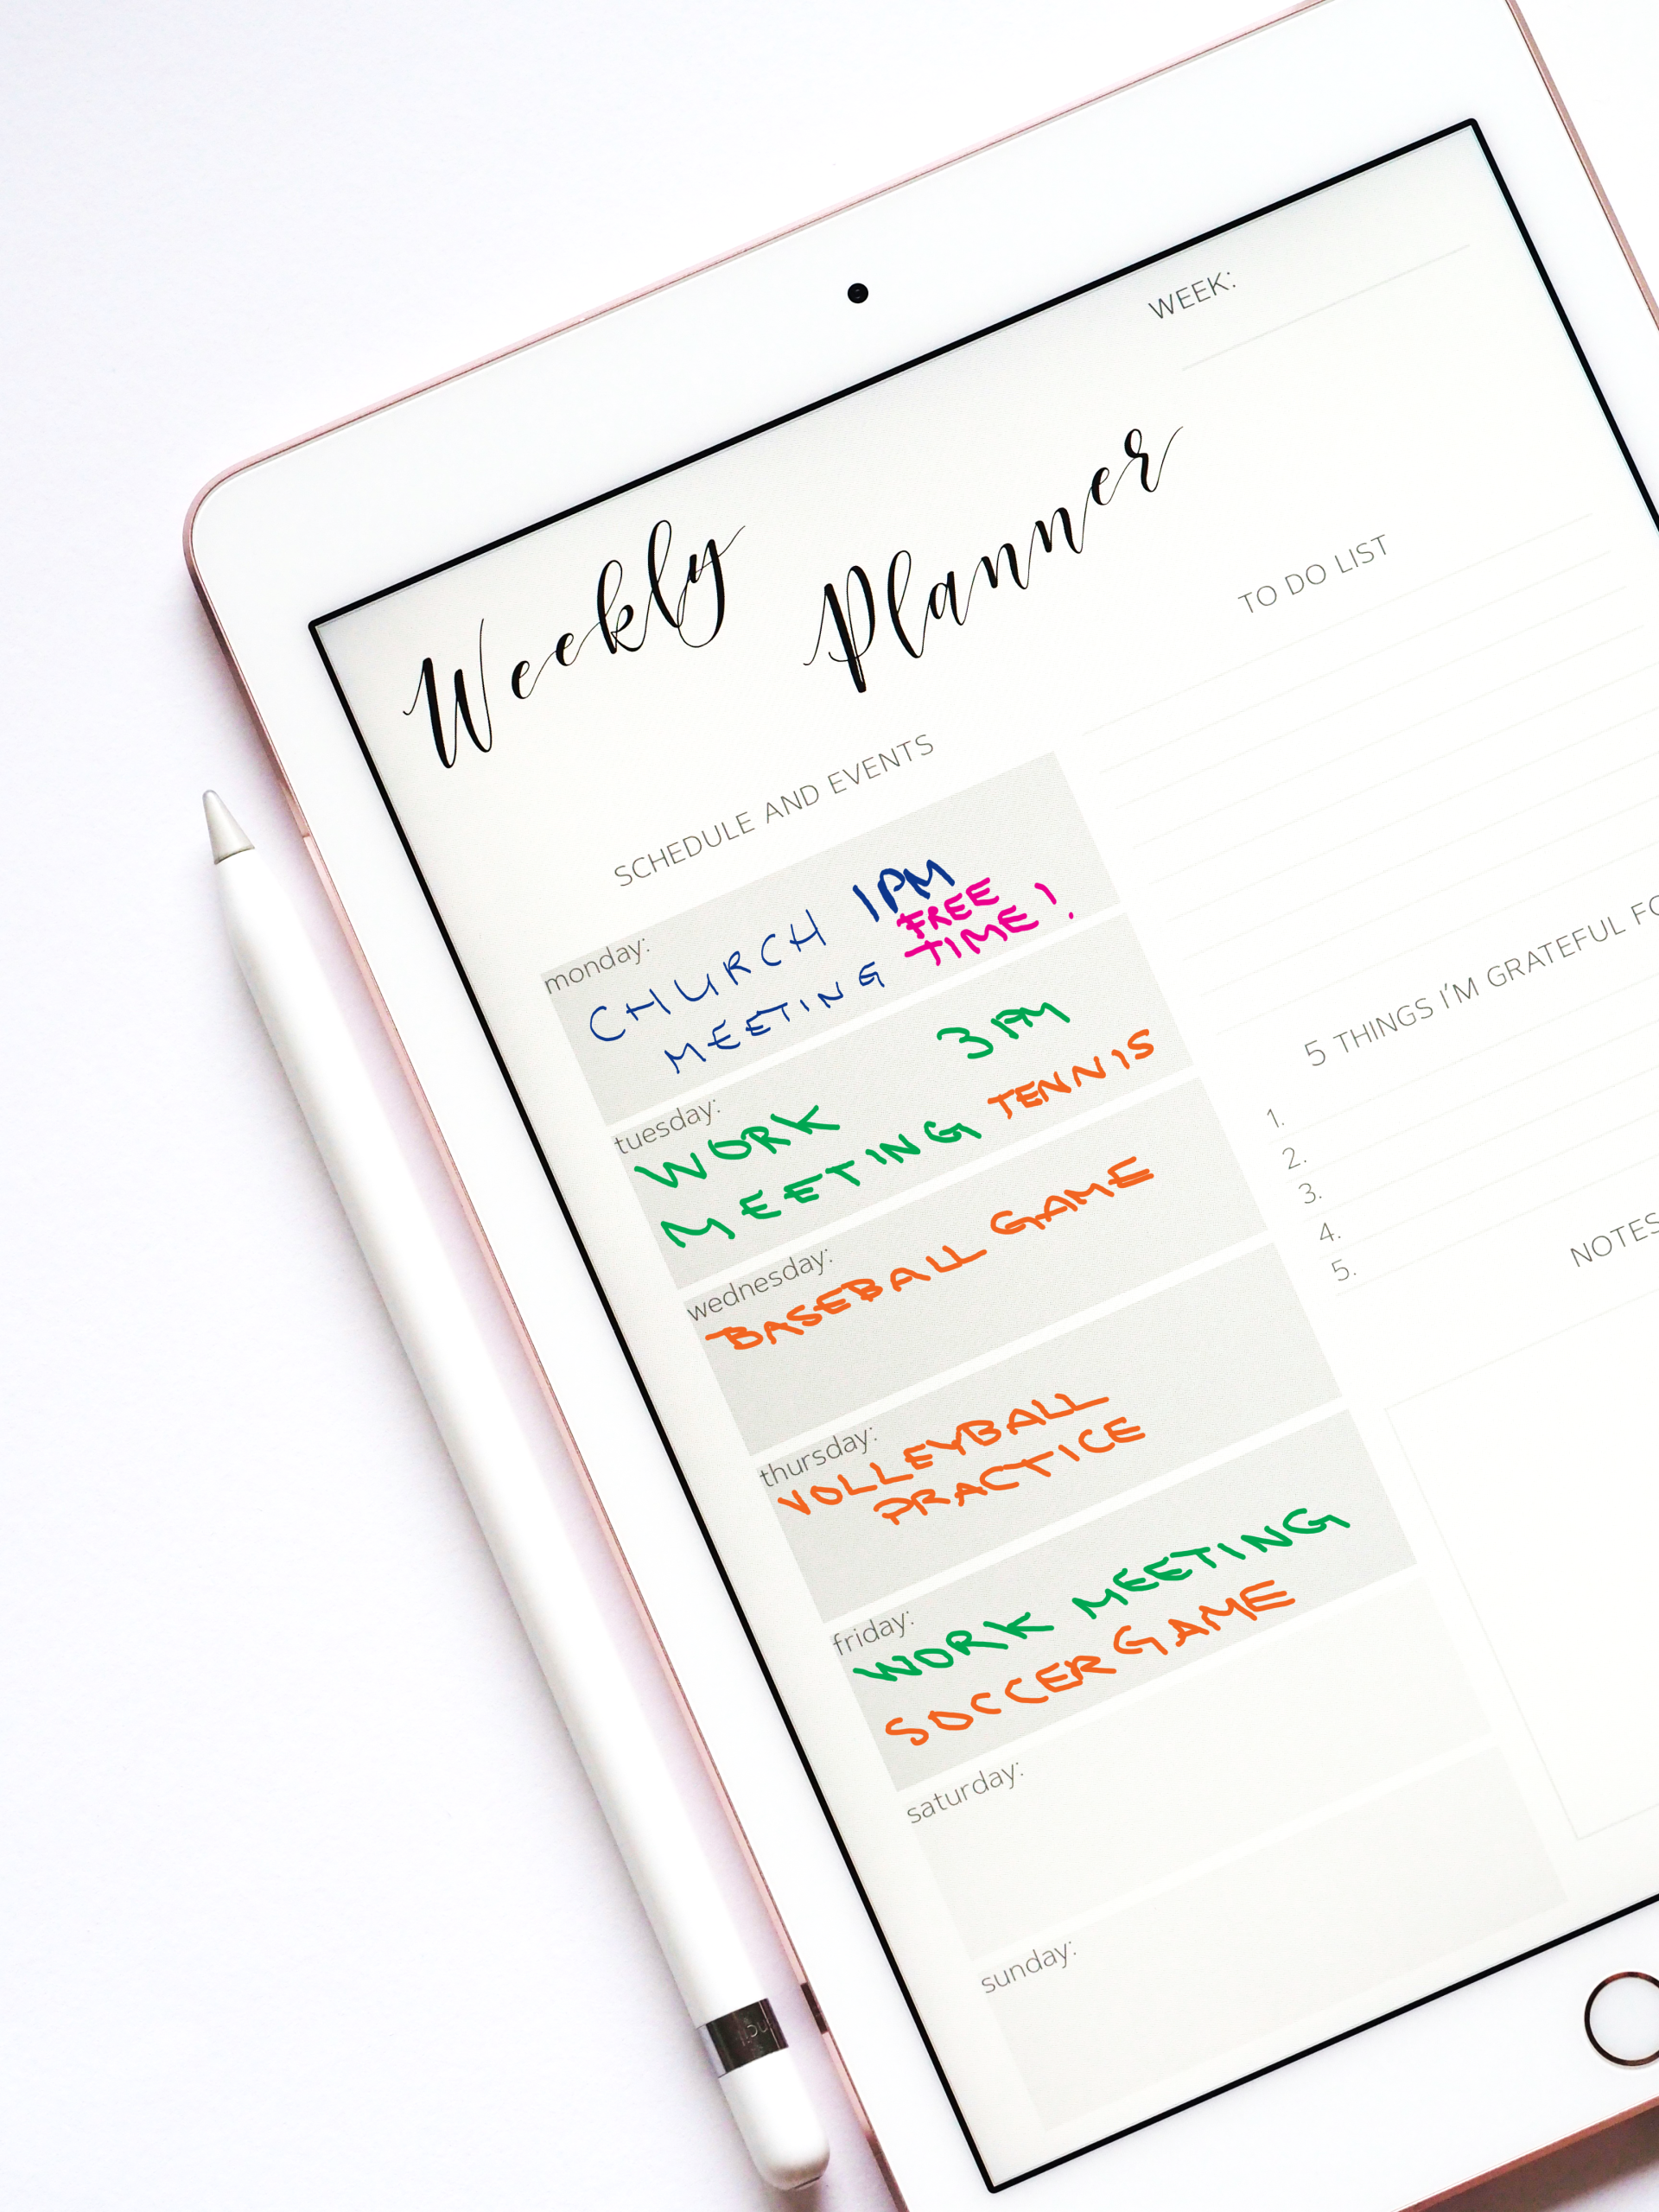 WEEK:
Weekly Planner
SCHEDULE AND EVENTS
monday:
CHURCH 1PM
MEETING FREE
TIME!
tuesday:
WORK 3PM
MEETING TENNIS
wednesday:
BASEBALL GAME
thursday:
VOLLEYBALL
PRACTICE
friday:
WORK MEETING
SOCCER GAME
saturday:
sunday:
TO DO LIST
5 THINGS I'M GRATEFUL
1.
2.
3.
4.
5.
NOTES